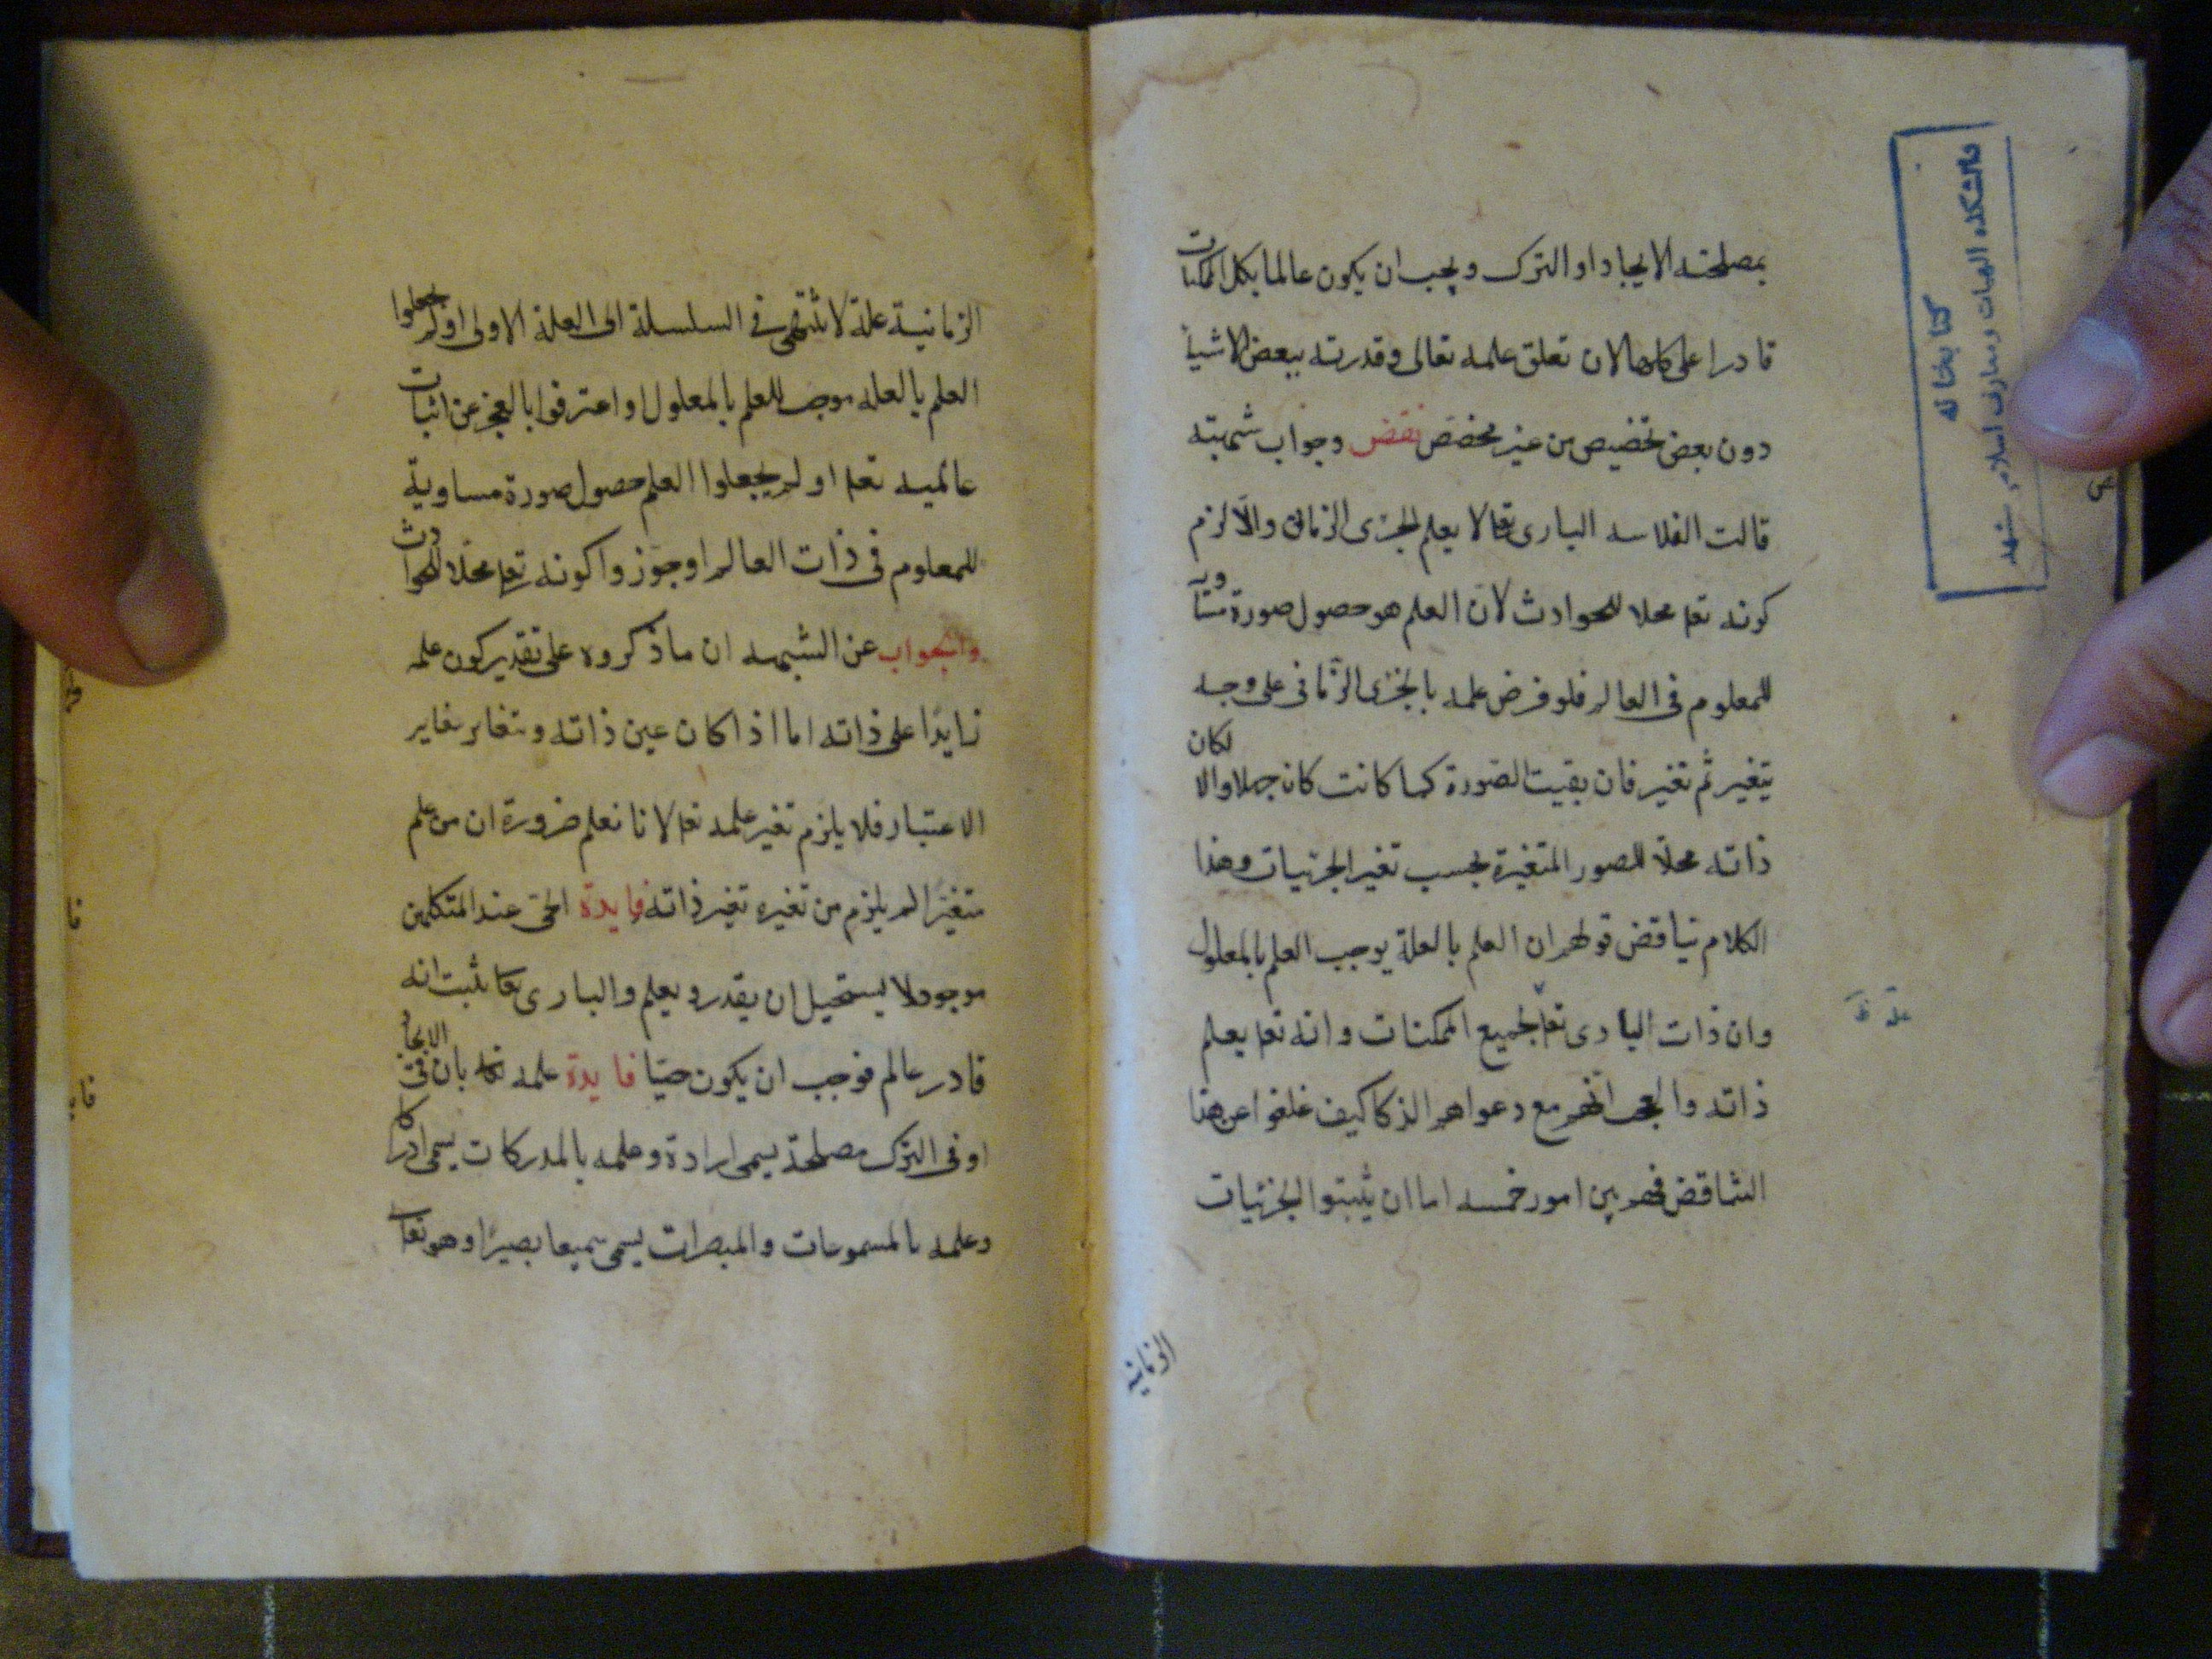 بمصلحته الايجاد او الترك ويجب ان يكون عالما بكل الممكنات
قادرا على كلها لان تعلق علمه تعالى وقدرته ببعض الاشياء
دون بعض تخصيص من غير مخصص نقض وجواب شبهته
قالت الفلاسه البارى تعا لا يعلم الجزى الزمانى والا لزم
كونه تعا محلا للحوادث لان العلم هو حصول صورة مساوية
للمعلوم فى العالم فلو فرض علمه بالجزى الزمانى على وجه
يتغير ثم تغير فان بقيت الصورة كما كانت كان جهلا والا لكان
ذاته محلا للصور المتغيرة بحسب تغير الجزئيات وهذا
الكلام يناقض قولهم ان العلم بالعلة يوجب العلم بالمعلول
وان ذات البارى تعا لجميع الممكنات وانه تعا يعلم
علة
ذاته والعجب انهم مع دعواهم الذكا كيف غفلوا عن هذا
التناقض فهم بين امور خمسه اما ان يثبتوا الجزئيات
الزمانية
كتابخانه
دانشكده الهيات ومعارف اسلامى مشهد
الزمانية علة لا تنتهى فى السلسلة الى العلة الاولى او لم يجعلوا
العلم بالعله موجب للعلم بالمعلول او اعترفوا بالعجز عن اثبات
عالميه تعا او لم يجعلوا العلم حصول صورة مساوية
للمعلوم فى ذات العالم او جوزوا كونه تعا محلا للحوادث
والجواب عن الشبهه ان ما ذكروه على تقدير كون علمه
زايدا على ذاته اما اذا كان عين ذاته ويتغاير بتغاير
الاعتبار فلا يلزم تغير علمه تعا لانا نعلم ضرورة ان من علم
متغيرا لم يلزم من تغيره تغير ذاته فايدة الحى عند المتكلمين
موجود لا يستحيل ان يقدر ويعلم والبارى تعا ثبت انه
قادر عالم فوجب ان يكون حيا فايدة علمه تعا بان فى الايجاد
او فى الترك مصلحة يسمى ارادة وعلمه بالمدركات يسمى ادراكا
وعلمه بالمسموعات والمبصرات يسمى سميعا بصيرا وهو تعا